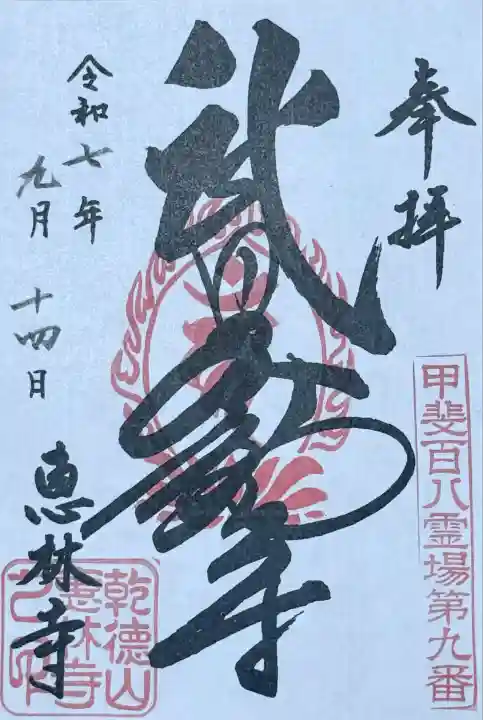 奉拝
甲斐百八霊場第九番
武田不動尊
令和七年
九月十四日
恵林寺
乾徳山
恵林寺